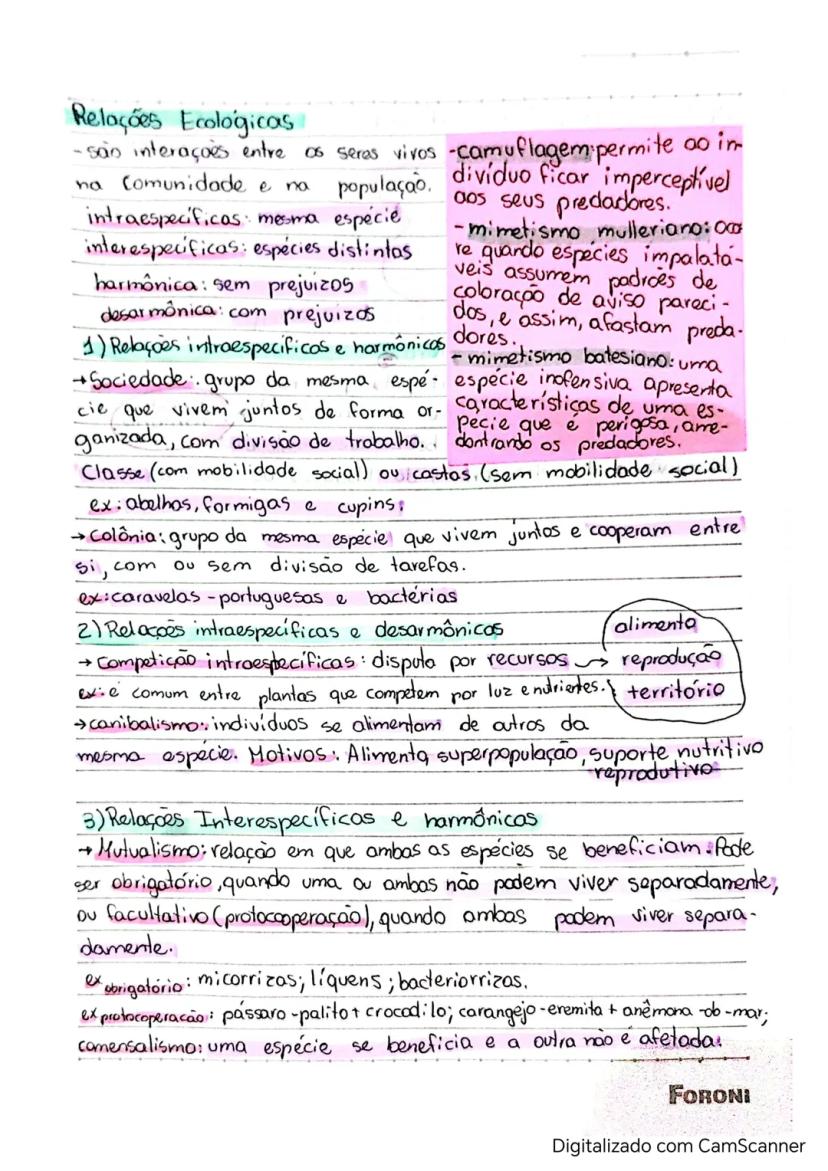 Relações Ecológicas
- são interações entre os seres vivos
na comunidade e na população.
intraespecíficas: mesma espécie
interespecíficas: espécies distintas
harmônica: sem prejuízos
desarmônica: com prejuízos
1) Relações intraespecíficas e harmônicas
→ Sociedade: grupo da mesma espé-
cie que vivem juntos de forma or-
ganizada, com divisão de trabalho.
Classe (com mobilidade social) ou castas (sem mobilidade social)
ex: abelhas, formigas e cupins;
- camuflagem: permite ao in-
divíduo ficar imperceptível
aos seus predadores.
- mimetismo mulleriano: ocor
re quando espécies impalatá-
veis assumem padrões de
coloração de aviso pareci-
dos, e assim, afastam preda-
dores.
- mimetismo batesiano: uma
espécie inofensiva apresenta
características de uma es-
pecie que é perigosa, ame-
dontrando os predadores.
→ Colônia: grupo da mesma espécie que vivem juntos e cooperam entre
si, com ou sem divisão de tarefas.
ex: caravelas - portuguesas e bactérias
2) Relações intraespecíficas e desarmônicas
→ Competição intraespecíficas: disputa por recursos →
ex: é comum entre plantas que competem por luz e nutrientes.
alimento
reprodução
território
→ canibalismo: indivíduos se alimentam de outros da
mesma espécie. Motivos: Alimento, superpopulação, suporte nutritivo
reprodutivo
3) Relações Interespecíficas e harmônicas
→ Mutualismo: relação em que ambas as espécies se beneficiam. Pode
ser obrigatório, quando uma ou ambas não podem viver separadamente,
ou facultativo (protocooperação), quando ambas podem viver separa-
damente.
ex obrigatório: micorrizas; líquens; bacteriorrizas.
ex protocoperacão: pássaro-palito + crocodilo; carangejo-eremita + anêmona-ob-mar;
comensalismo: uma espécie se beneficia e a outra não é afetada.
FORONI
Digitalizado com CamScanner